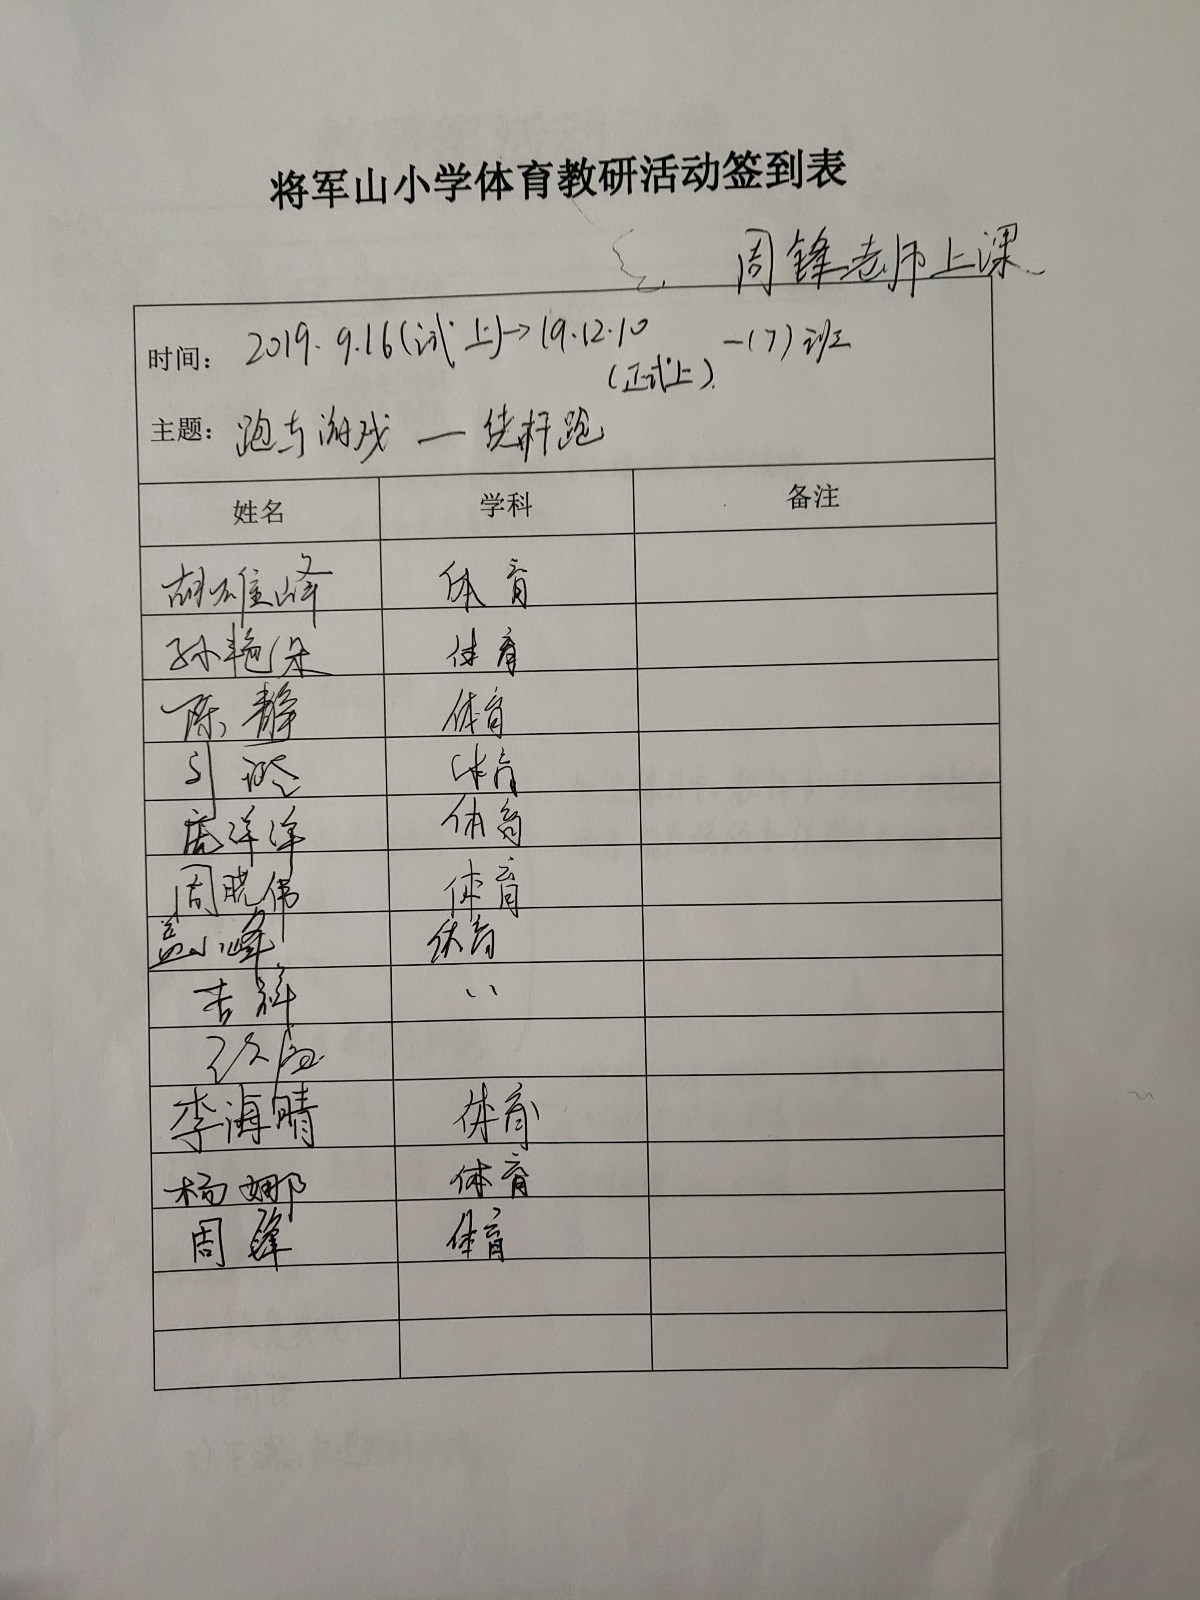 将军山小学体育教研活动签到表
周锋老师上课
时间： 2019.9.16(试上)→19.12.10 一(7)班
(正式上)
主题： 跑与游戏 — 绕杆跑
姓名 学科 备注
胡雄峰 体育
孙艳朵 体育
陈静 体育
体育
周洋洋 体育
周晓伟 体育
孟小峰 体育
吉祥 ''
李海晴 体育
杨娜 体育
周锋 体育